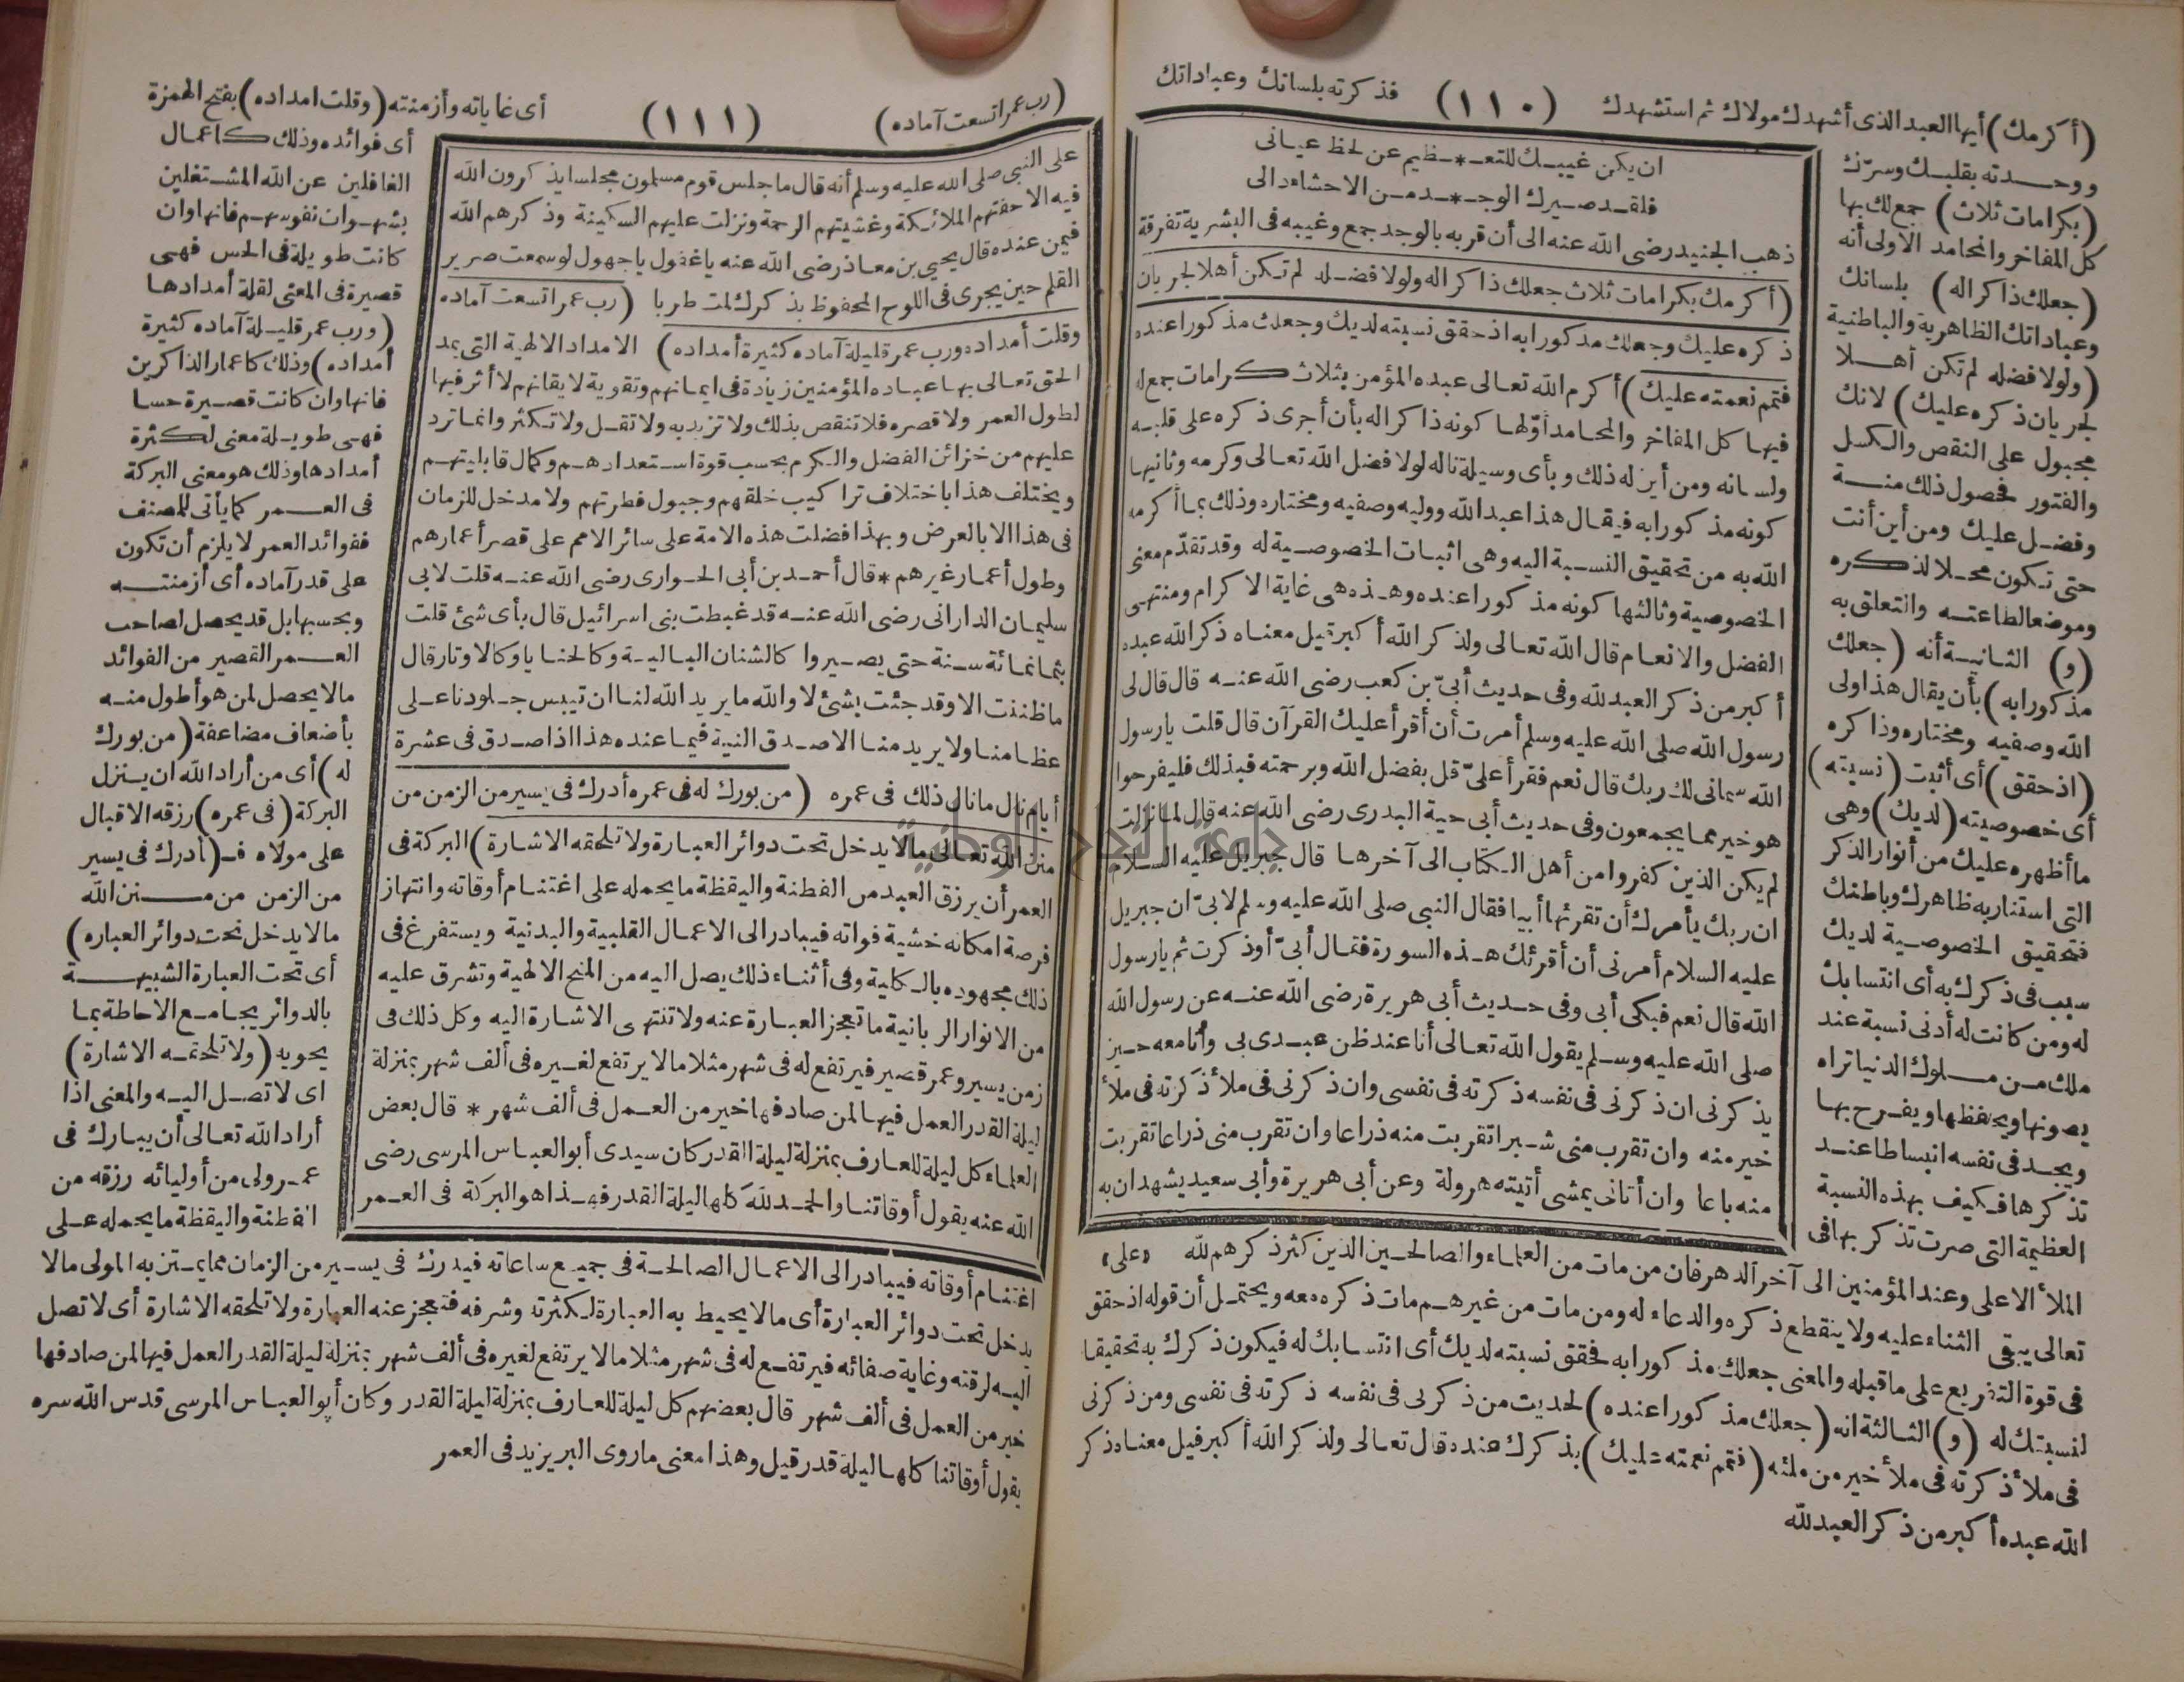 (أكرمك) أيها العبد الذى أشهدك مولاك ثم استشهدك (١١٠) فذكرته بلسانك وعباداتك
ووحدته بقلبك وسرّك
(بكرامات ثلاث) جمع لك بها
كل المفاخر والمحامد الاولى أنه
(جعلك ذاكرا له) بلسانك
وعباداتك الظاهرية والباطنية
(ولولا فضله لم تكن أهلا
لجريان ذكره عليك) لانك
مجبول على النقص والكسل
والفتور فحصول ذلك منة
وفضل عليك ومن أين أنت
حتى تكون محلا لذكره
وموضعا لطاعته والتعلق به
(و) الثانية أنه (جعلك
مذكورا به) بأن يقال هذا ولى
الله وصفيه ومختاره وذاكره
(اذ حقق) أى أثبت (نسبته)
أى خصوصيته (لديك) وهى
ما أظهره عليك من أنوار الذكر
التى استنار به ظاهرك وباطنك
فتحقيق الخصوصية لديك
سبب فى ذكرك به أى انتسابك
له ومن كانت له أدنى نسبة عند
ملك من ملوك الدنيا تراه
يصونها ويحفظها ويفرح بها
ويجد فى نفسه انبساطا عند
تذكرها فكيف بهذه النسبة
العظيمة التى صرت تذكر بها فى
ان يكن غيبك للتعـ*ـظيم عن لحظ عيانى
فلقد صيرك الوجـ*ـد من الاحشاء دانى
ذهب الجنيد رضى الله عنه الى أن قربه بالوجد جمع وغيبه فى البشرية تفرقة
(أكرمك بكرامات ثلاث جعلك ذاكرا له ولولا فضله لم تكن أهلا لجريان
ذكره عليك وجعلك مذكورا به اذ حقق نسبته لديك وجعلك مذكورا عنده
فتمم نعمته عليك) أكرم الله تعالى عبده المؤمن بثلاث كرامات جمع له
فيها كل المفاخر والمحامد أوّلها كونه ذاكرا له بأن أجرى ذكره على قلبه
ولسانه ومن أين له ذلك وبأى وسيلة ناله لولا فضل الله تعالى وكرمه وثانيها
كونه مذكورا به فيقال هذا عبد الله ووليه وصفيه ومختاره وذلك بما أكرمه
الله به من تحقيق النسبة اليه وهى اثبات الخصوصية له وقد تقدّم معنى
الخصوصية وثالثها كونه مذكورا عنده وهذه هى غاية الاكرام ومنتهى
الفضل والانعام قال الله تعالى ولذكر الله أكبر قيل معناه ذكر الله عبده
أكبر من ذكر العبد لله وفى حديث أبىّ بن كعب رضى الله عنه قال قال لى
رسول الله صلى الله عليه وسلم أمرت أن أقرأ عليك القرآن قال قلت يا رسول
الله سمانى لك ربك قال نعم فقرأ علىّ قل بفضل الله وبرحمته فبذلك فليفرحوا
هو خير مما يجمعون وفى حديث أبى حية البدرى رضى الله عنه قال لما نزلت
لم يكن الذين كفروا من أهل الكتاب الى آخرها قال جبريل عليه السلام
ان ربك يأمرك أن تقرئها أبيا فقال النبى صلى الله عليه وسلم لابىّ ان جبريل
عليه السلام أمرنى أن أقرئك هذه السورة فقال أبىّ أوذكرت ثم يا رسول
الله قال نعم فبكى أبى وفى حديث أبى هريرة رضى الله عنه عن رسول الله
صلى الله عليه وسلم يقول الله تعالى أنا عند ظن عبدى بى وأنا معه حين
يذكرنى ان ذكرنى فى نفسه ذكرته فى نفسى وان ذكرنى فى ملأ ذكرته فى ملأ
خير منه وان تقرب منى شبرا تقربت منه ذراعا وان تقرب منى ذراعا تقربت
منه باعا وان أتانى يمشى أتيته هرولة وعن أبى هريرة وأبى سعيد يشهدان به
«على»
الملأ الاعلى وعند المؤمنين الى آخر الدهر فان من مات من العلماء والصالحين الذين كثر ذكرهم لله
تعالى يبقى الثناء عليه ولا ينقطع ذكره والدعاء له ومن مات من غيرهم مات ذكره معه ويحتمل أن قوله اذ حقق
فى قوة التفريع على ما قبله والمعنى جعلك مذكورا به فحقق نسبته لديك أى انتسابك له فيكون ذكرك به تحقيقا
لنسبتك له (و) الثالثة انه (جعلك مذكورا عنده) لحديث من ذكرنى فى نفسه ذكرته فى نفسى ومن ذكرنى
فى ملأ ذكرته فى ملأ خير من ملئه (فتمم نعمته عليك) بذكرك عنده قال تعالى ولذكر الله أكبر قيل معناه ذكر
الله عبده أكبر من ذكر العبد لله
(رب عمر اتسعت آماده) (١١١) أى غاياته وأزمنته (وقلت امداده) بفتح الهمزة
أى فوائده وذلك كاعمال
الغافلين عن الله المشتغلين
بشهوات نفوسهم فانها وان
كانت طويلة فى الحس فهى
قصيرة فى المعنى لقلة أمدادها
(ورب عمر قليلة آماده كثيرة
أمداده) وذلك كاعمار الذاكرين
فانها وان كانت قصيرة حسا
فهى طويلة معنى لكثرة
أمدادها وذلك هو معنى البركة
فى العمر كما يأتى للمصنف
ففوائد العمر لا يلزم أن تكون
على قدر آماده أى أزمنته
وبحسبها بل قد يحصل لصاحب
العمر القصير من الفوائد
مالا يحصل لمن هو أطول منه
بأضعاف مضاعفة (من بورك
له) أى من أراد الله ان ينزل
البركة (فى عمره) رزقه الاقبال
على مولاه فـ(أدرك فى يسير
من الزمن من منن الله
مالا يدخل تحت دوائر العباره)
أى تحت العبارة الشبيهة
بالدوائر بجامع الاحاطة بما
يحويه (ولا تلحقه الاشارة)
اى لا تصل اليه والمعنى اذا
أراد الله تعالى أن يبارك فى
عمر ولى من أوليائه رزقه من
الفطنة واليقظة ما يحمله على
على النبى صلى الله عليه وسلم أنه قال ما جلس قوم مسلمون مجلسا يذكرون الله
فيه الا حفتهم الملائكة وغشيتهم الرحمة ونزلت عليهم السكينة وذكرهم الله
فيمن عنده قال يحيى بن معاذ رضى الله عنه يا غفول يا جهول لو سمعت صرير
القلم حين يجرى فى اللوح المحفوظ بذكرك لمت طربا (رب عمر اتسعت آماده
وقلت أمداده ورب عمر قليلة آماده كثيرة أمداده) الامداد الالهية التى يمد
الحق تعالى بها عباده المؤمنين زيادة فى ايمانهم وتقوية لايقانهم لا أثر فيها
لطول العمر ولا قصره فلا تنقص بذلك ولا تزيد به ولا تقل ولا تكثر وانما ترد
عليهم من خزائن الفضل والكرم بحسب قوة استعدادهم وكمال قابليتهم
ويختلف هذا باختلاف تراكيب خلقهم وجبول فطرتهم ولا مدخل للزمان
فى هذا الا بالعرض وبهذا فضلت هذه الامة على سائر الامم على قصر أعمارهم
وطول أعمار غيرهم * قال أحمد بن أبى الحوارى رضى الله عنه قلت لابى
سليمان الدارانى رضى الله عنه قد غبطت بنى اسرائيل قال بأى شئ قلت
بثمانمائة سنة حتى يصيروا كالشنان البالية وكالحنايا وكالاوتار قال
ما ظننت الا وقد جئت بشئ لا والله ما يريد الله لنا ان تيبس جلودنا على
عظامنا ولا يريد منا الا صدق النية فيما عنده هذا اذا صدق فى عشرة
أيام نال ما نال ذلك فى عمره (من بورك له فى عمره أدرك فى يسير من الزمن من
منن الله تعالى مالا يدخل تحت دوائر العبارة ولا تلحقه الاشارة) البركة فى
العمر أن يرزق العبد من الفطنة واليقظة ما يحمله على اغتنام أوقاته وانتهاز
فرصة امكانه خشية فواته فيبادر الى الاعمال القلبية والبدنية ويستفرغ فى
ذلك مجهوده بالكلية وفى أثناء ذلك يصل اليه من المنح الالهية وتشرق عليه
من الانوار الربانية ما تعجز العبارة عنه ولا تنتهى الاشارة اليه وكل ذلك فى
زمن يسير وعمر قصير فيرتفع له فى شهر مثلا مالا يرتفع لغيره فى ألف شهر بمنزلة
ليلة القدر العمل فيها لمن صادفها خير من العمل فى ألف شهر * قال بعض
العلماء كل ليلة للعارف بمنزلة ليلة القدر كان سيدى أبو العباس المرسى رضى
الله عنه يقول أوقاتنا والحمد لله كلها ليلة القدر فهذا هو البركة فى العمر
اغتنام أوقاته فيبادر الى الاعمال الصالحة فى جميع ساعاته فيدرك فى يسير من الزمان مما يمتن به المولى مالا
يدخل تحت دوائر العبارة أى مالا يحيط به العبارة لكثرته وشرفه فتعجز عنه العبارة ولا تلحقه الاشارة أى لا تصل
اليه لرقته وغاية صفائه فيرتفع له فى شهر مثلا مالا يرتفع لغيره فى ألف شهر بمنزلة ليلة القدر العمل فيها لمن صادفها
خير من العمل فى ألف شهر قال بعضهم كل ليلة للعارف بمنزلة ليلة القدر وكان أبو العباس المرسى قدس الله سره
يقول أوقاتنا كلها ليلة قدر قيل وهذا معنى ما روى البر يزيد فى العمر
جامعة النجاح الوطنية